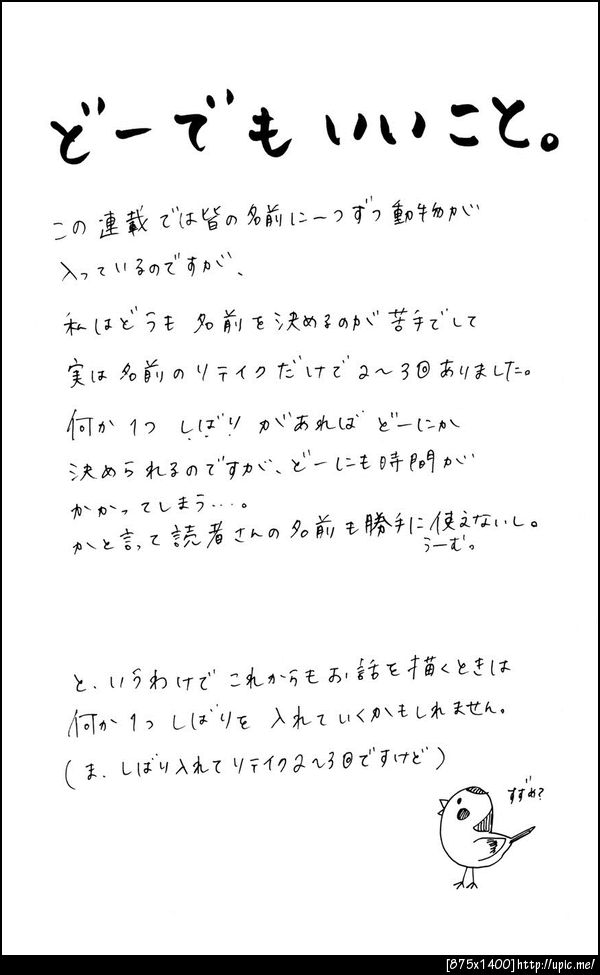 どーでもいいこと。
この連載では皆の名前に一つずつ動物が
入っているのですが、
私はどうも名前を決めるのが苦手でして
実は名前のリテイクだけで2〜3回ありました。
何か1つしばりがあればどーにか
決められるのですが、どーにも時間が
かかってしまう…。
かと言って読者さんの名前も勝手に使えないし。
うーむ。
と、いうわけでこれからもお話を描くときは
何か1つしばりを入れていくかもしれません。
(ま、しばり入れてリテイク2〜3回ですけど)
すずめ?
[875x1400]http://upic.me/